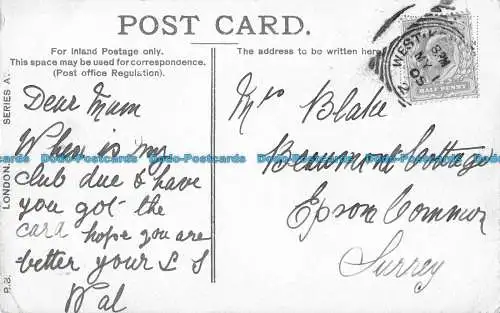 POST CARD.
For Inland Postage only.
This space may be used for correspondence.
(Post office Regulation).
The address to be written here
Dear Mum
When is my
club due & have
you got the
card hope you are
better your L S
Wal
Mrs Blake
Beaumont Cottage
Epsom Common
Surrey
WEST
8 PM
MY 1
05
HALF PENNY
P.B. LONDON. SERIES A.
Dodo-Postcards Dodo-Postcards Dodo-Postcards Dodo-Postcards